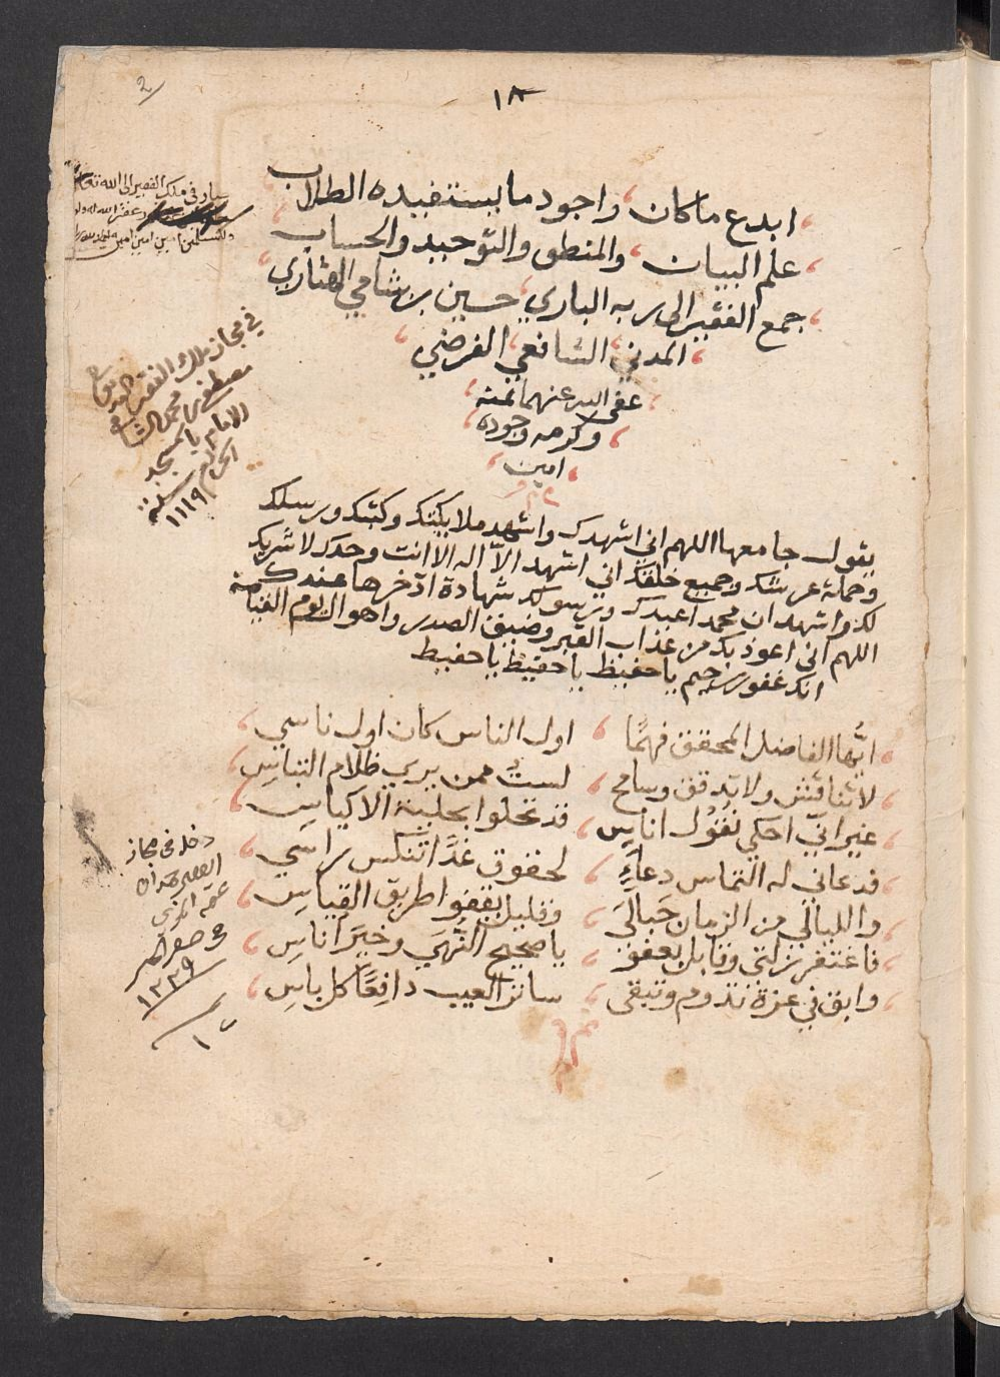 ١٨
2
ابدع ما كان واجود ما يستفيده الطلاب
علم البيان والمنطق والتوحيد والحساب
جمع الفقير الى ربه الباري حسين بن شامي
المدني الشافعي الفرضي
عفى الله عنهما بمنه
وكرمه وجوده
امين
يقول جامعها اللهم اني اشهدك واشهد ملايكتك وكتبك ورسلك
وحملة عرشك وجميع خلقك اني اشهد الا اله الا انت وحدك لا شريك
لك واشهد ان محمدا عبدك ورسولك شهادة ادخرها عندك
اللهم اني اعوذ بك من عذاب القبر وضيق الصدر واهوال يوم القيامة
انك غفور رحيم يا حفيظ يا حفيظ يا حفيظ
ايُّها الفاضل المحقق فهمًا اول الناس كان اول ناسي
لا تناقش ولا تدقق وسامح لستُ ممن يري ظلام التباسِ
غير انّي احكي نقُول اناسٍ قد تحلوا بحلية الاكياسِ
قد عاني له التماس دعاءٍ لحقوق غدًا تنكس راسي
والليالي من الزمان حَبالَي وقليل يقفوا طريق القياسِ
فاغتفر زلتي وقابل بعفوٍ يا صحيح النُّهَي وخيرَ اناسِ
وابق في عزة تدوم وتبقى ساتر العيب دافعًا كل باسِ
في ملك الفقير الى الله تعالى
غفر الله له ولو
امين امين
في مجاز ملك الفقير
مصطفى بن محمد الشافعي
الامام بالمسجد
الحرام سنة
١١١٩
دخل في مجاز
صفر
١٢٣٩